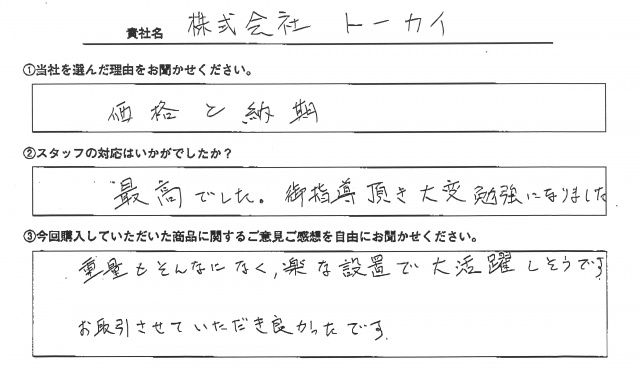 貴社名 株式会社 トーカイ
①当社を選んだ理由をお聞かせください。
価格と納期
②スタッフの対応はいかがでしたか？
最高でした。御指導頂き大変勉強になりました
③今回購入していただいた商品に関するご意見ご感想を自由にお聞かせください。
重量もそんなになく,楽な設置で大活躍しそうです
お取引させていただき良かったです.